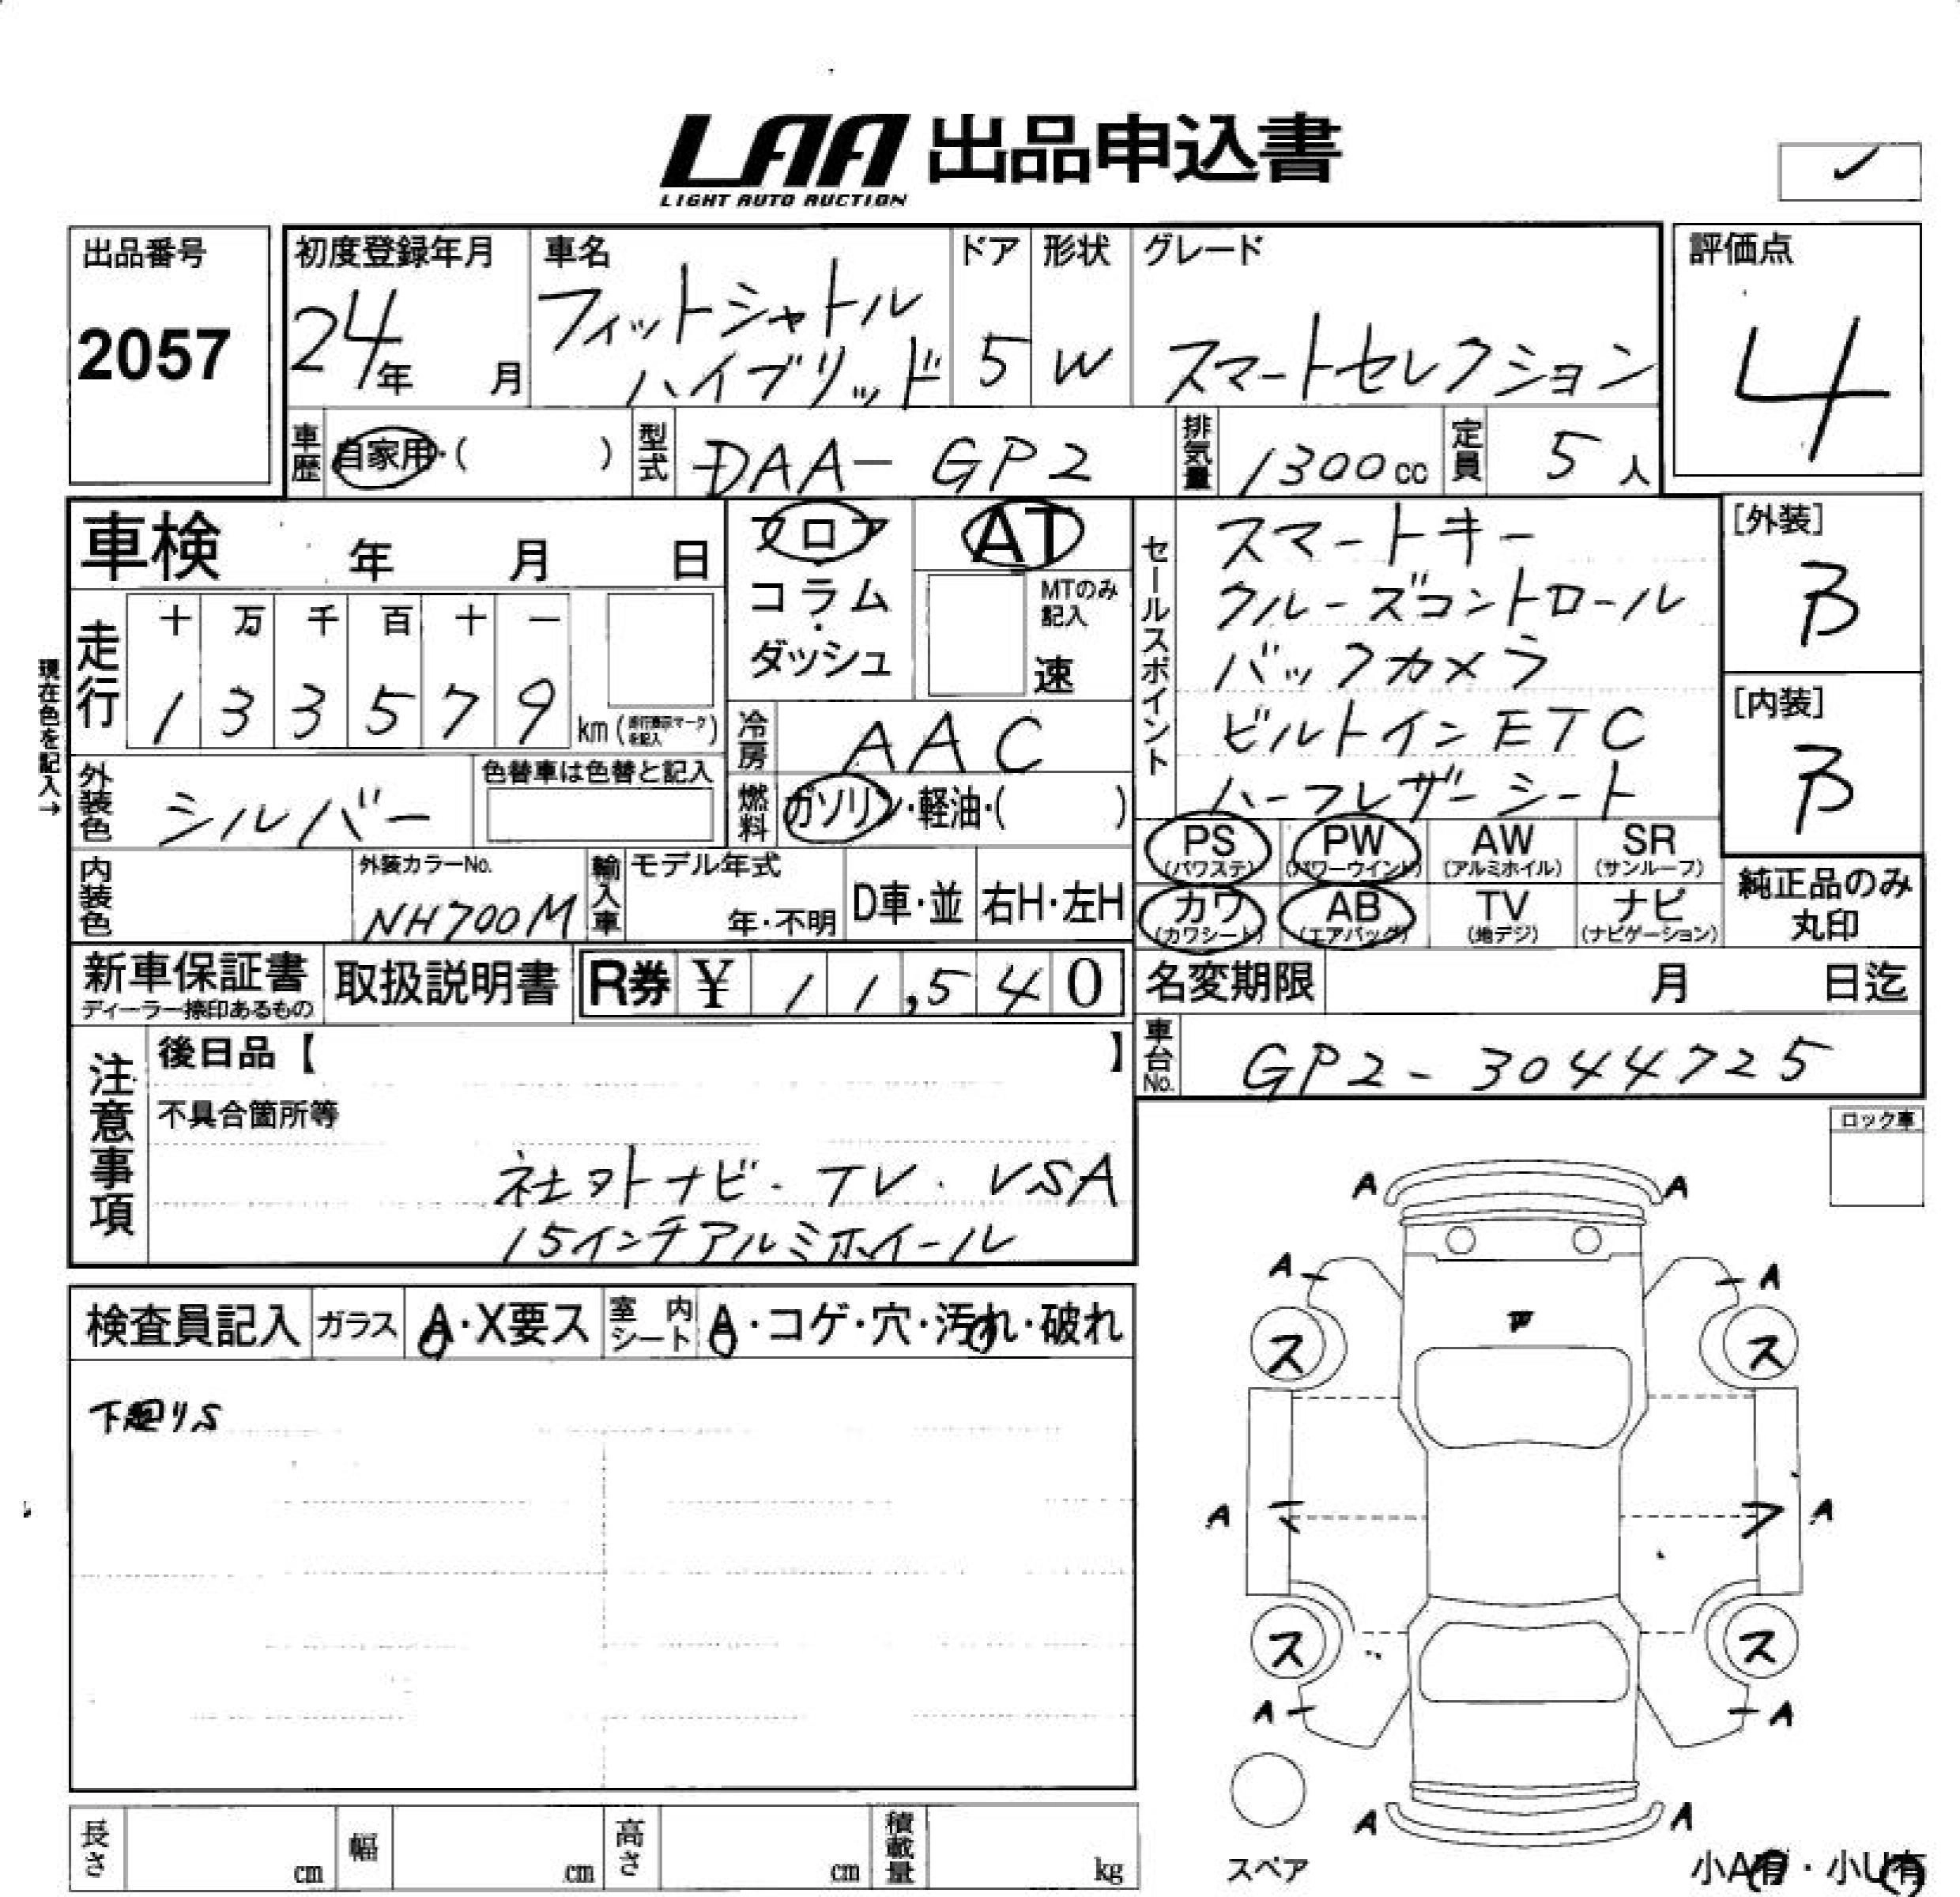 LAA 出品申込書
LIGHT AUTO AUCTION
出品番号
2057
初度登録年月
24年 月
車名
フィットシャトル
ハイブリッド
ドア
5
形状
W
グレード
スマートセレクション
評価点
4
車歴 自家用・( )
型式 DAA-GP2
排気量 1300cc
定員 5人
車検 年 月 日
現在色を記入→
走行
十 万 千 百 十 一
1 3 3 5 7 9 km
フロア
コラム
・
ダッシュ
AT
MTのみ
記入
速
冷房 AAC
燃料 ガソリン・軽油・( )
外装色 シルバー
色替車は色替と記入
内装色
外装カラーNo.
NH700M
輸入車
モデル年式
年・不明
D車・並
右H・左H
セールスポイント
スマートキー
クルーズコントロール
バックカメラ
ビルトインETC
ハーフレザーシート
[外装]
B
[内装]
B
PS (パワステ)
PW (パワーウインド)
AW (アルミホイル)
SR (サンルーフ)
カワ (カワシート)
AB (エアバック)
TV (地デジ)
ナビ (ナビゲーション)
純正品のみ
丸印
新車保証書
ディーラー捺印あるもの
取扱説明書
R券 ¥ 11,540
名変期限 月 日迄
車台No. GP2-3044725
注意事項
後日品【 】
不具合箇所等
社外ナビ・TV・VSA
15インチアルミホイール
ロック車
検査員記入
ガラス A・X要ス
室内シート A・コゲ・穴・汚れ・破れ
A A
A A
ス ス
A A
ス ス
A A
A A
スペア
小A有・小U有
長さ cm
幅 cm
高さ cm
積載量 kg